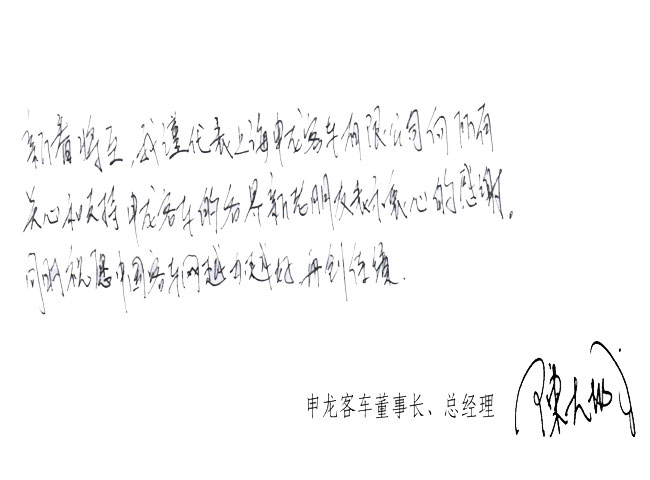 新春将至，我谨代表上海申龙客车有限公司向所有
关心和支持申龙客车的各界新老朋友表示衷心的感谢。
同时祝愿中国客车网越办越好，再创佳绩.
申龙客车董事长、总经理